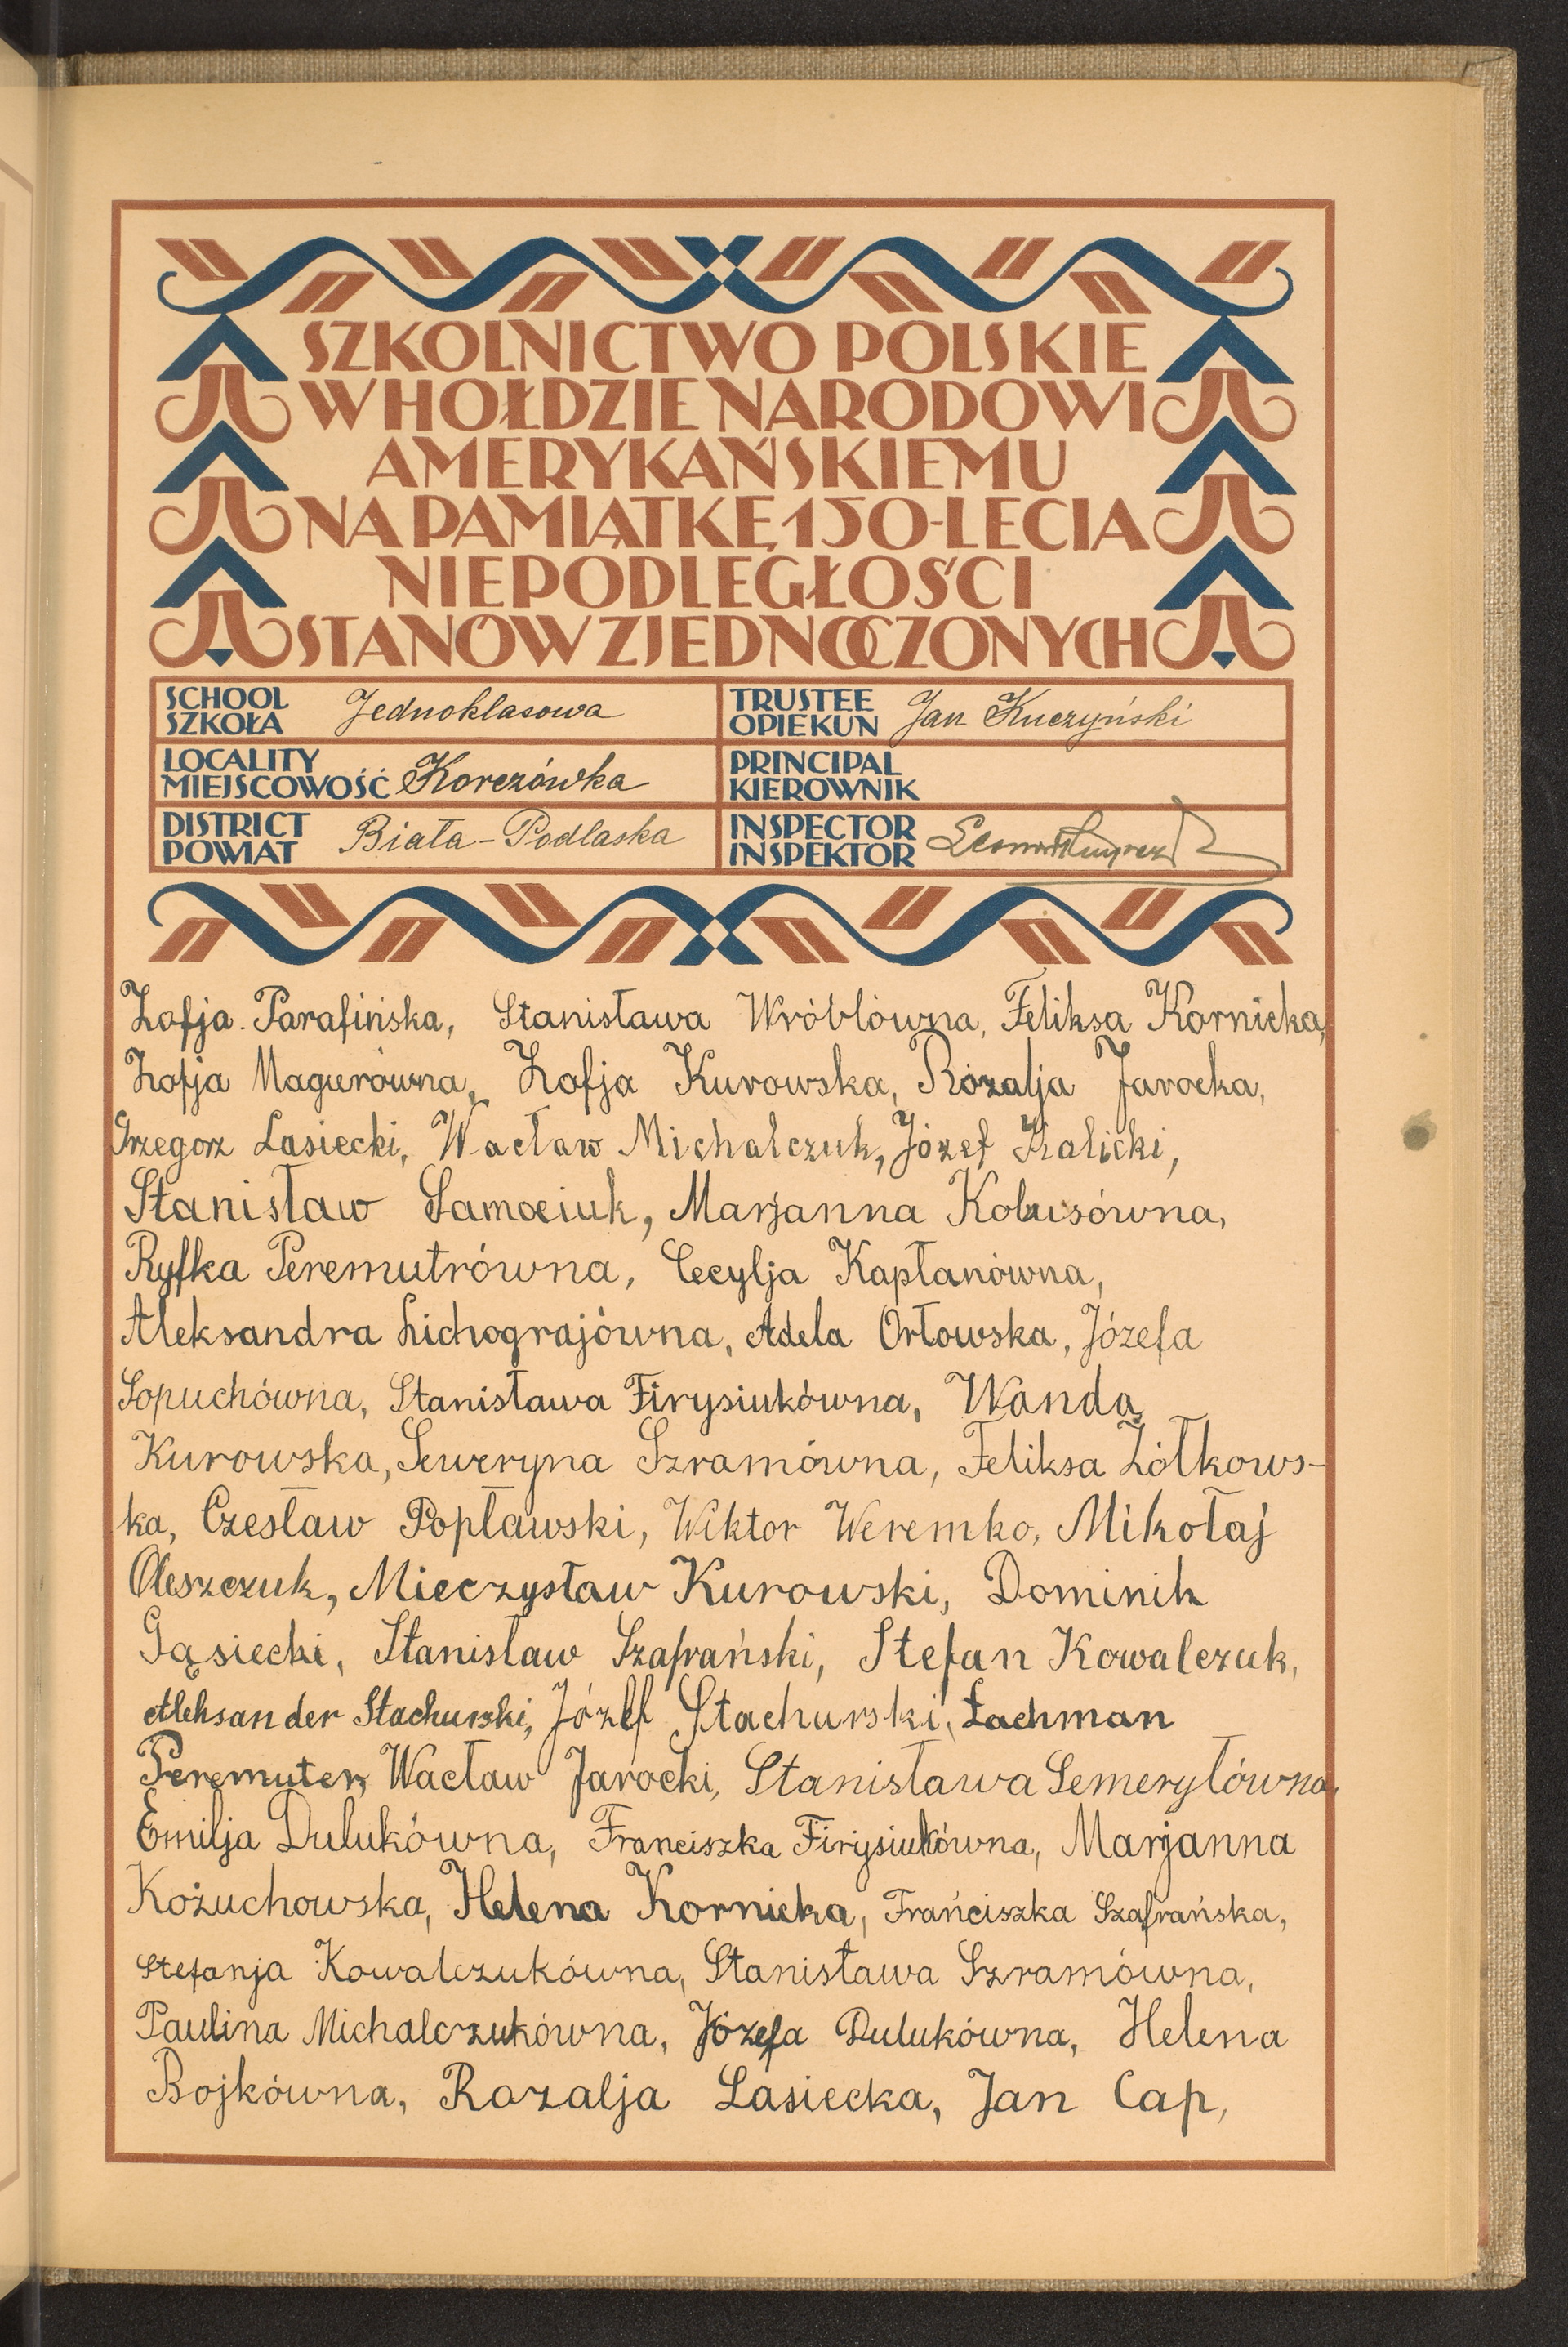 SZKOLNICTWO POLSKIE
W HOŁDZIE NARODOWI
AMERYKAŃSKIEMU
NA PAMIĄTKĘ 150-LECIA
NIEPODLEGŁOŚCI
STANÓW ZJEDNOCZONYCH
SCHOOL SZKOŁA Jednoklasowa
TRUSTEE OPIEKUN Jan Kuczyński
LOCALITY MIEJSCOWOŚĆ Korczówka
PRINCIPAL KIEROWNIK
DISTRICT POWIAT Biała-Podlaska
INSPECTOR INSPEKTOR
Zofja Parafińska, Stanisława Wróblówna, Feliksa Kornicka,
Zofja Magurówna, Zofja Kurowska, Rozalja Jarocka,
Grzegorz Lasiecki, Wacław Michalczuk, Józef Kalicki,
Stanisław Samociuk, Marjanna Kobusówna,
Ryfka Peremutrówna, Cecylja Kapłanówna,
Aleksandra Lichograjówna, Adela Orłowska, Józefa
Sopuchówna, Stanisława Firysiukówna, Wanda
Kurowska, Seweryna Szramówna, Feliksa Żółkows-
ka, Czesław Popławski, Wiktor Weremko, Mikołaj
Oleszczuk, Mieczysław Kurowski, Dominik
Gąsiecki, Stanisław Szafrański, Stefan Kowalczuk,
Aleksander Stachurski, Józef Stachurski, Łachman
Peremuter, Wacław Jarocki, Stanisława Semeryłówna,
Emilja Dulukówna, Franciszka Firysiukówna, Marjanna
Kożuchowska, Helena Kornicka, Frańciszka Szafrańska,
Stefanja Kowalczukówna, Stanisława Szramówna,
Paulina Michalczukówna, Józefa Dulukówna, Helena
Bojkówna, Rozalja Lasiecka, Jan Cap,